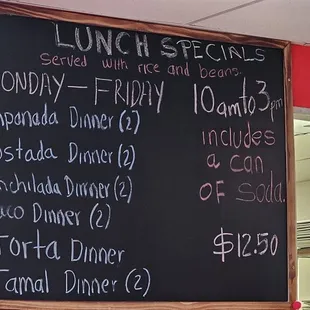 LUNCH SPECIALS
Served with rice and beans.
ONDAY - FRIDAY 10am to 3pm
npanada Dinner (2)
ostada Dinner (2)
nchilada Dinner (2)
aco Dinner (2)
Torta Dinner
Tamal Dinner (2)
includes
a can
OF Soda.
$12.50